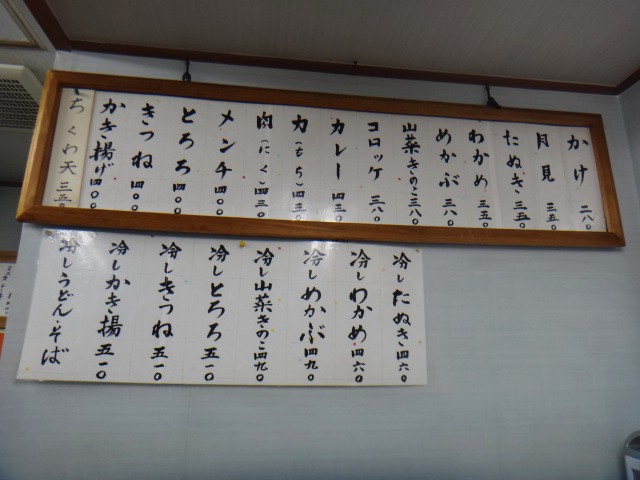 かけ 二八〇
月見 三五〇
たぬき 三五〇
わかめ 三五〇
めかぶ 三八〇
山菜きのこ 三八〇
コロッケ 三八〇
カレー 四三〇
力(もち) 四三〇
肉(にく) 四三〇
メンチ 四〇〇
とろろ 四〇〇
きつね 四〇〇
かき揚げ 四〇〇
ちくわ天 三三〇
冷したぬき 四六〇
冷しわかめ 四六〇
冷しめかぶ 四九〇
冷し山菜きのこ 四九〇
冷しとろろ 五一〇
冷しきつね 五一〇
冷しかき揚 五一〇
冷しうどん・そば